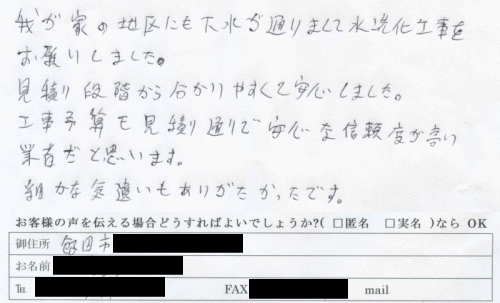 我が家の地区にも下水が通りまして水洗化工事を
お願いしました。
見積り段階から分かりやすくて安心しました。
工事予算も見積り通りで安心な信頼度が高い
業者だと思います。
細かな気遣いもありがたかったです。
お客様の声を伝える場合どうすればよいでしょうか?( □匿名 □実名 )なら OK
御住所 飯田市
お名前
℡ FAX mail